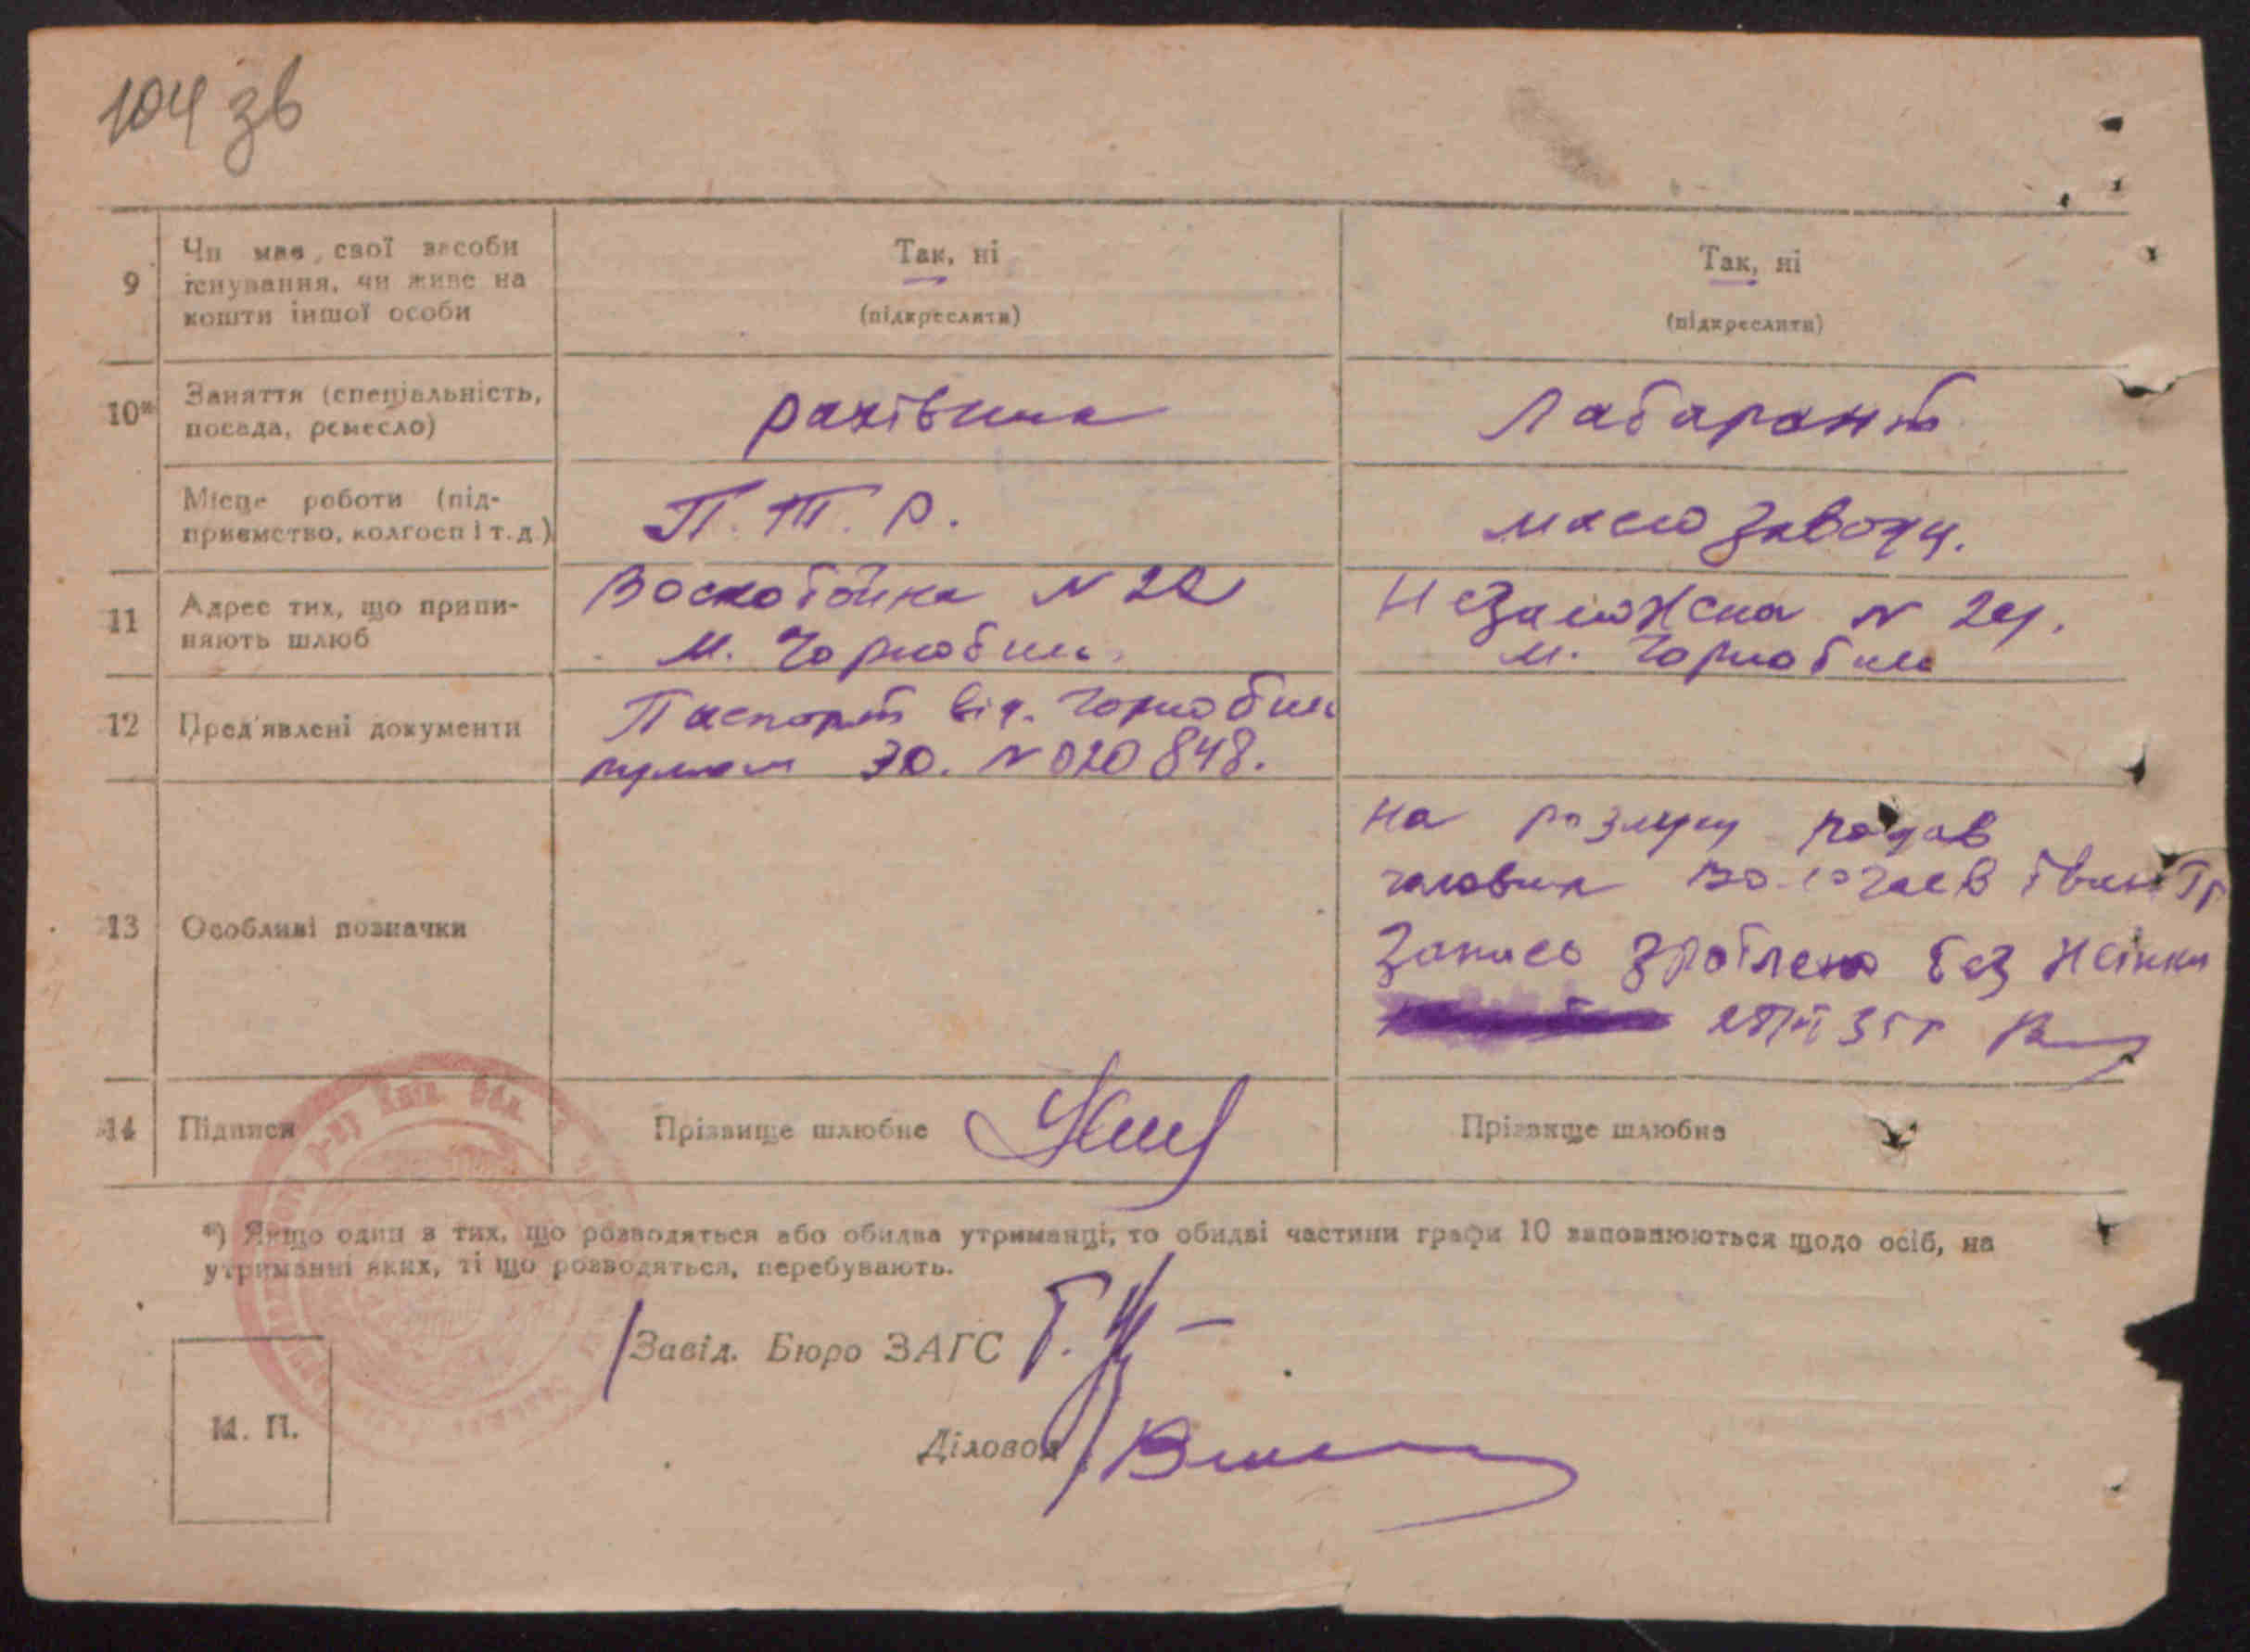 104 зв
9
Чи має свої засоби
існування, чи живе на
кошти іншої особи
Так, ні
(підкреслити)
Так, ні
(підкреслити)
10*
Заняття (спеціальність,
посада, ремесло)
рахівник
Лабарант
Місце роботи (під-
приємство, колгосп і т. д.)
П. Т. Р.
масло заводу.
11
Адрес тих, що припи-
няють шлюб
Воскобойна № 22
м. Чорнобиль
Незаможна № 24.
м. Чорнобиль
12
Пред'явлені документи
Паспорт від. Чорнобил
ЭО. № 020848.
13
Особливі позначки
на розлуку подав
чоловик Іван Гр
Запись зроблено без жінки
35 г
14
Підписи
Прізвище шлюбне
Прізвище шлюбне
*) Якщо один з тих, що розводяться або обидва утриманці, то обидві частини графи 10 заповнюються щодо осіб, на
утриманні яких, ті що розводяться, перебувають.
Завід. Бюро ЗАГС
Діловод
М. П.